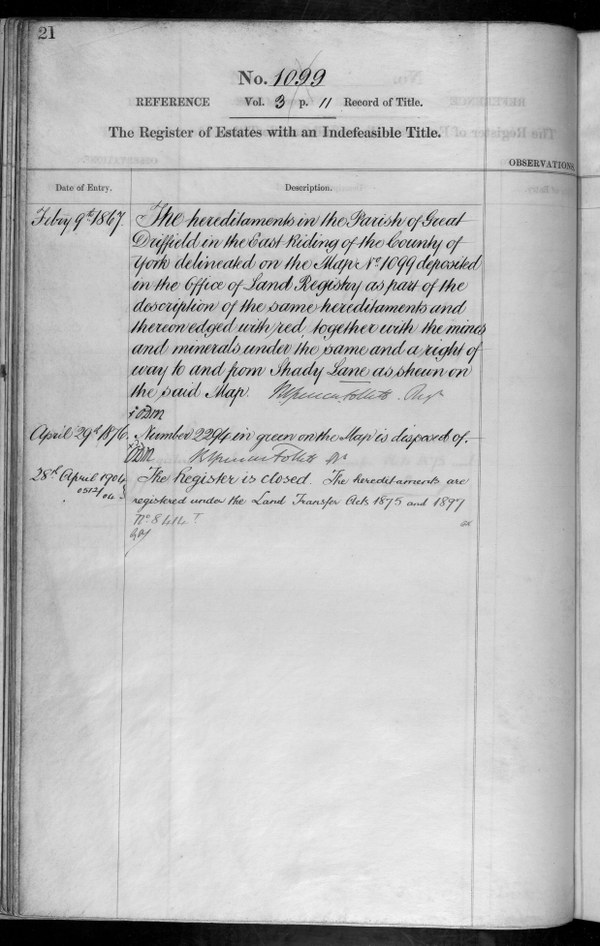 21
No. 1099
REFERENCE Vol. 3 p. 11 Record of Title.
The Register of Estates with an Indefeasible Title.
OBSERVATIONS
Date of Entry. Description.
Febry 9th 1867. The hereditaments in the Parish of Great
Driffield in the East Riding of the County of
York delineated on the Map No. 1099 deposited
in the Office of Land Registry as part of the
description of the same hereditaments and
thereon edged with red together with the mines
and minerals under the same and a right of
way to and from Shady Lane as shewn on
the said Map.
April 29th 1876. Number 2294 in green on the Map is disposed of.
28th April 1904 The Register is closed. The hereditaments are
registered under the Land Transfer Acts 1875 and 1897